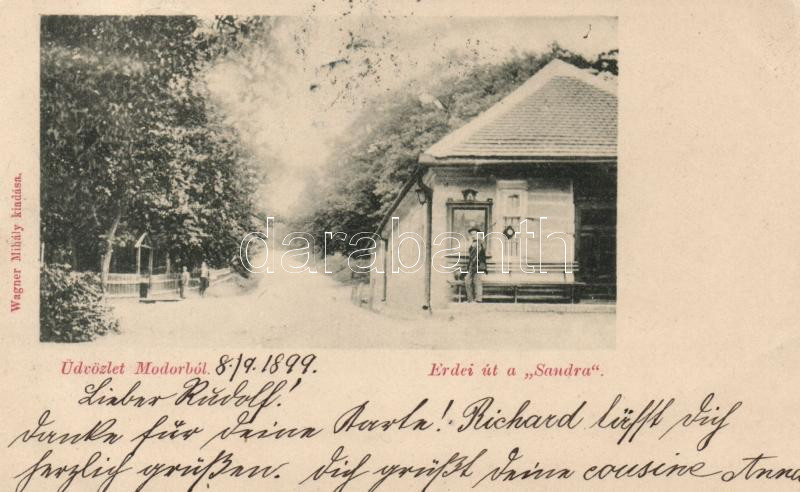 Wagner Mihály kiadása.
darabanth
Üdvözlet Modorból. 8./9. 1899.
Erdei út a „Sandra“.
Lieber Rudolf!
Danke für deine Karte! Richard läßt Dich
herzlich grüßen. Dich grüßt deine cousine Anna